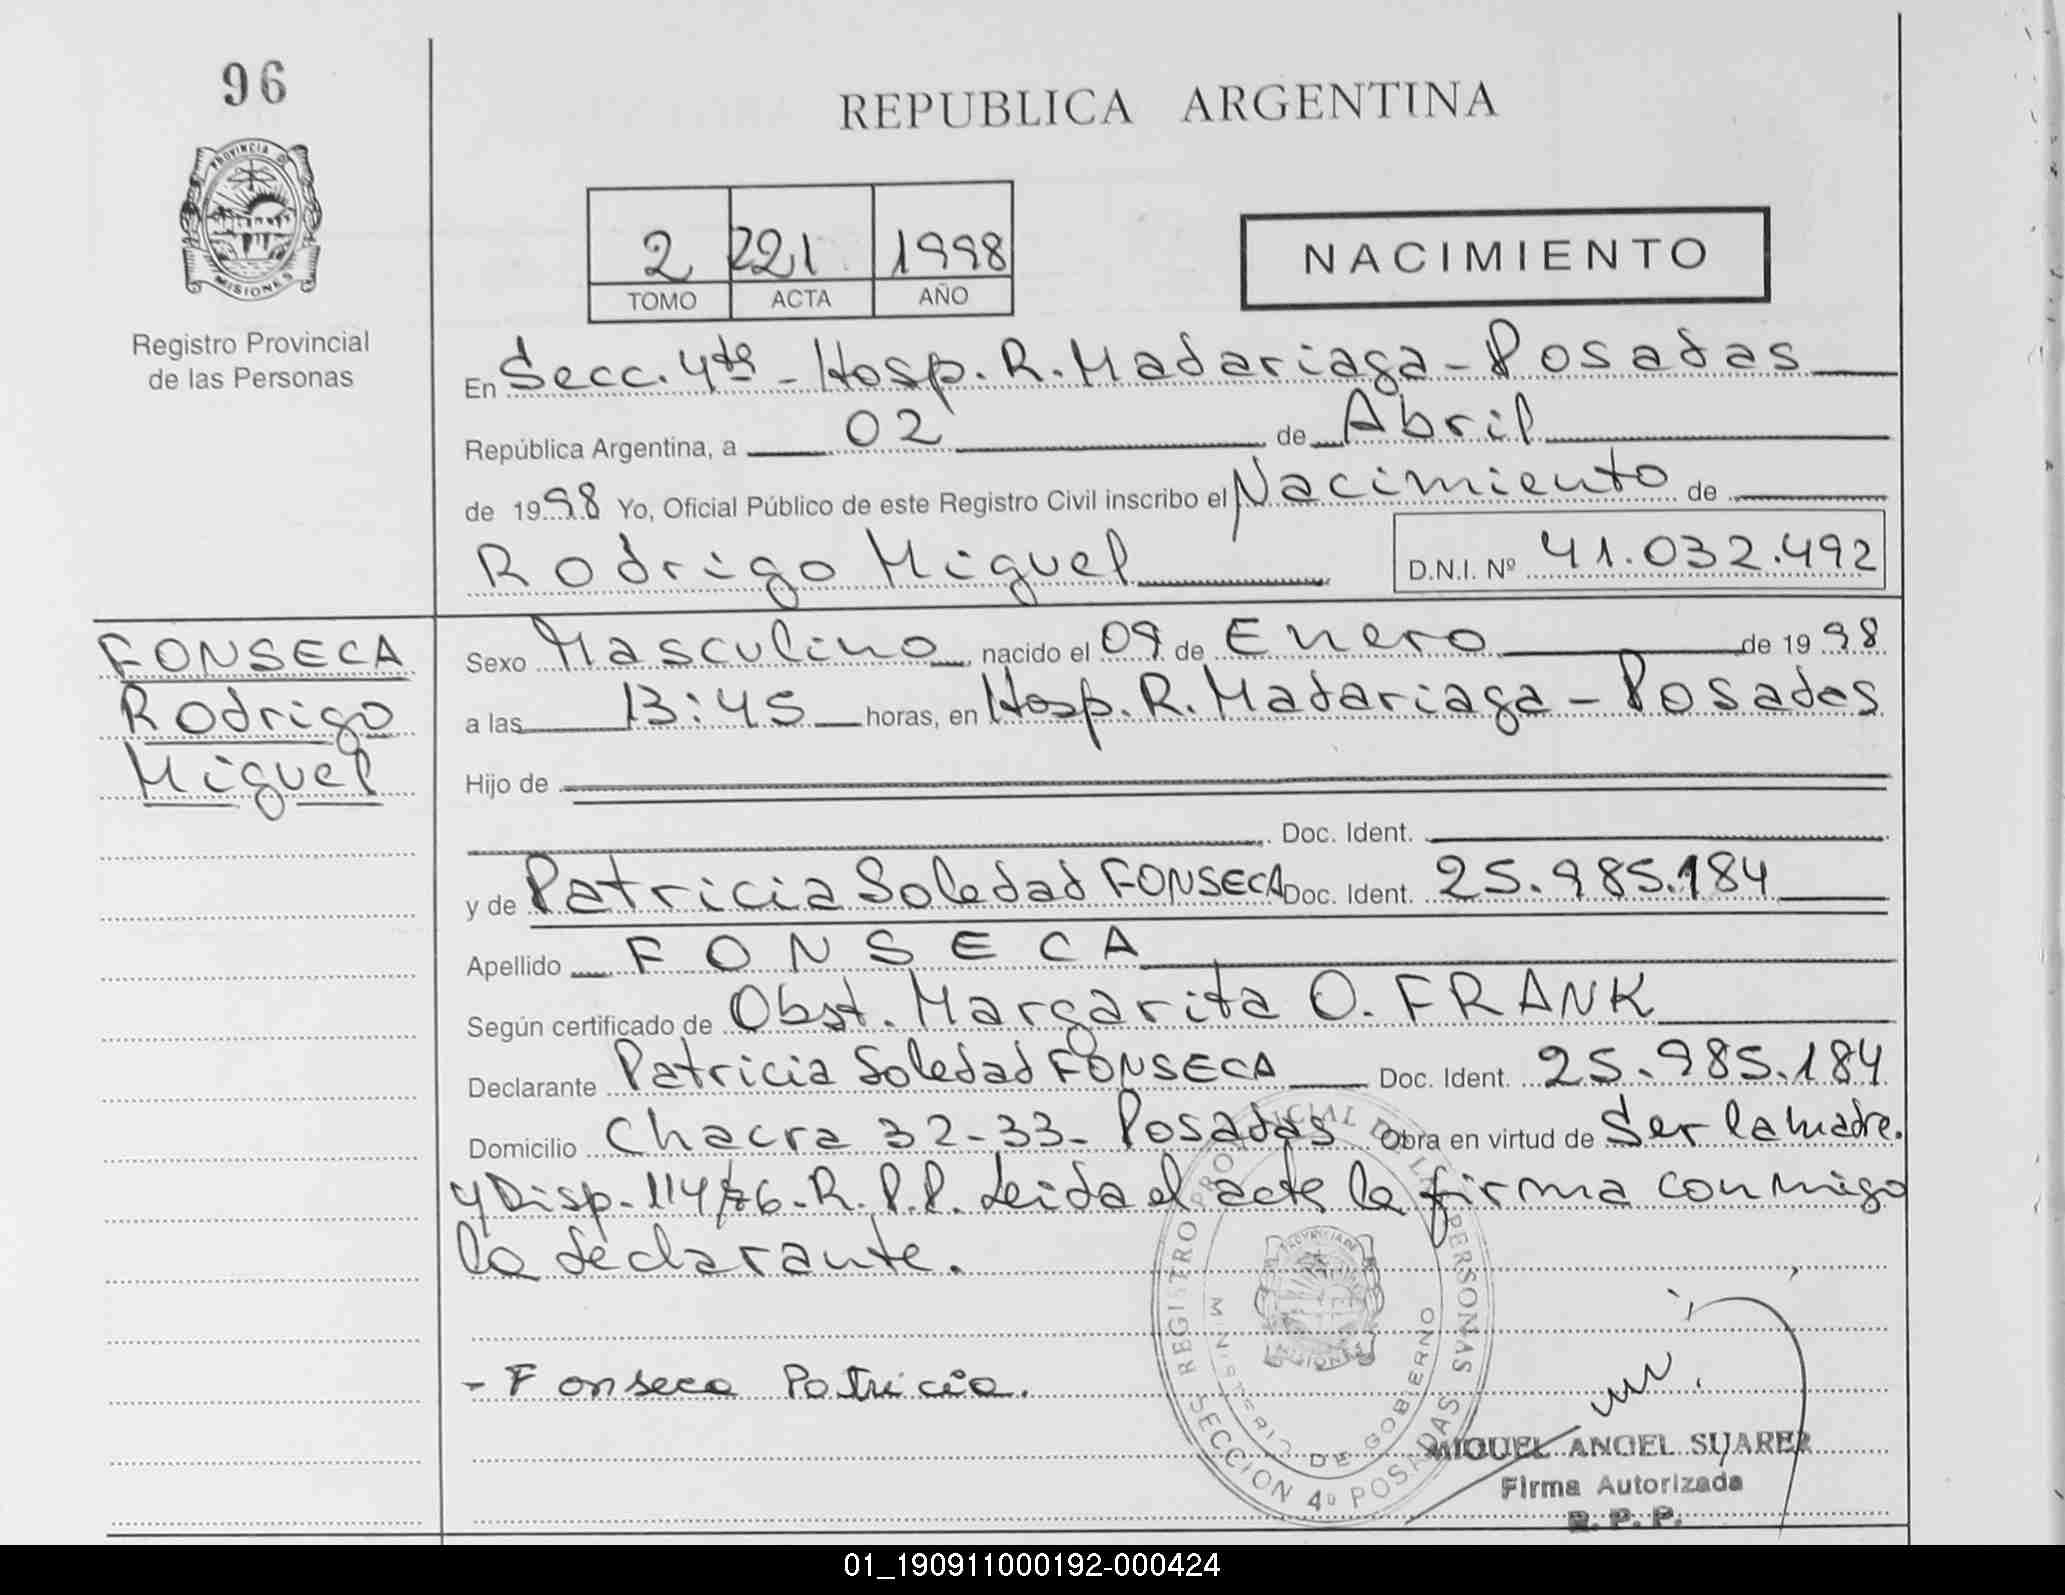 96
REPUBLICA ARGENTINA
PROVINCIA DE
MISIONES
Registro Provincial
de las Personas
2 221 1998
TOMO ACTA AÑO
NACIMIENTO
En Secc. 4ta - Hosp. R. Madariaga - Posadas
República Argentina, a 02 de Abril
de 1998 Yo, Oficial Público de este Registro Civil inscribo el Nacimiento de
Rodrigo Miguel D.N.I. Nº 41.032.492
FONSECA
Rodrigo
Miguel
Sexo Masculino nacido el 09 de Enero de 1998
a las 13:45 horas, en Hosp. R. Madariaga - Posadas
Hijo de
Doc. Ident.
y de Patricia Soledad FONSECA Doc. Ident. 25.985.184
Apellido FONSECA
Según certificado de Obst. Margarita O. FRANK
Declarante Patricia Soledad FONSECA Doc. Ident. 25.985.184
Domicilio Chacra 32-33- Posadas Obra en virtud de Ser la madre.
y Disp. 114/76. R.P.P. Leida el acta la firma conmigo
la declarante.
- Fonseca Patricia.
REGISTRO PROVINCIAL DE LAS PERSONAS
MINISTERIO DE GOBIERNO
PROVINCIA DE
MISIONES
SECCION 4º POSADAS
MIGUEL ANGEL SUAREZ
Firma Autorizada
R. P. P.
01_190911000192-000424